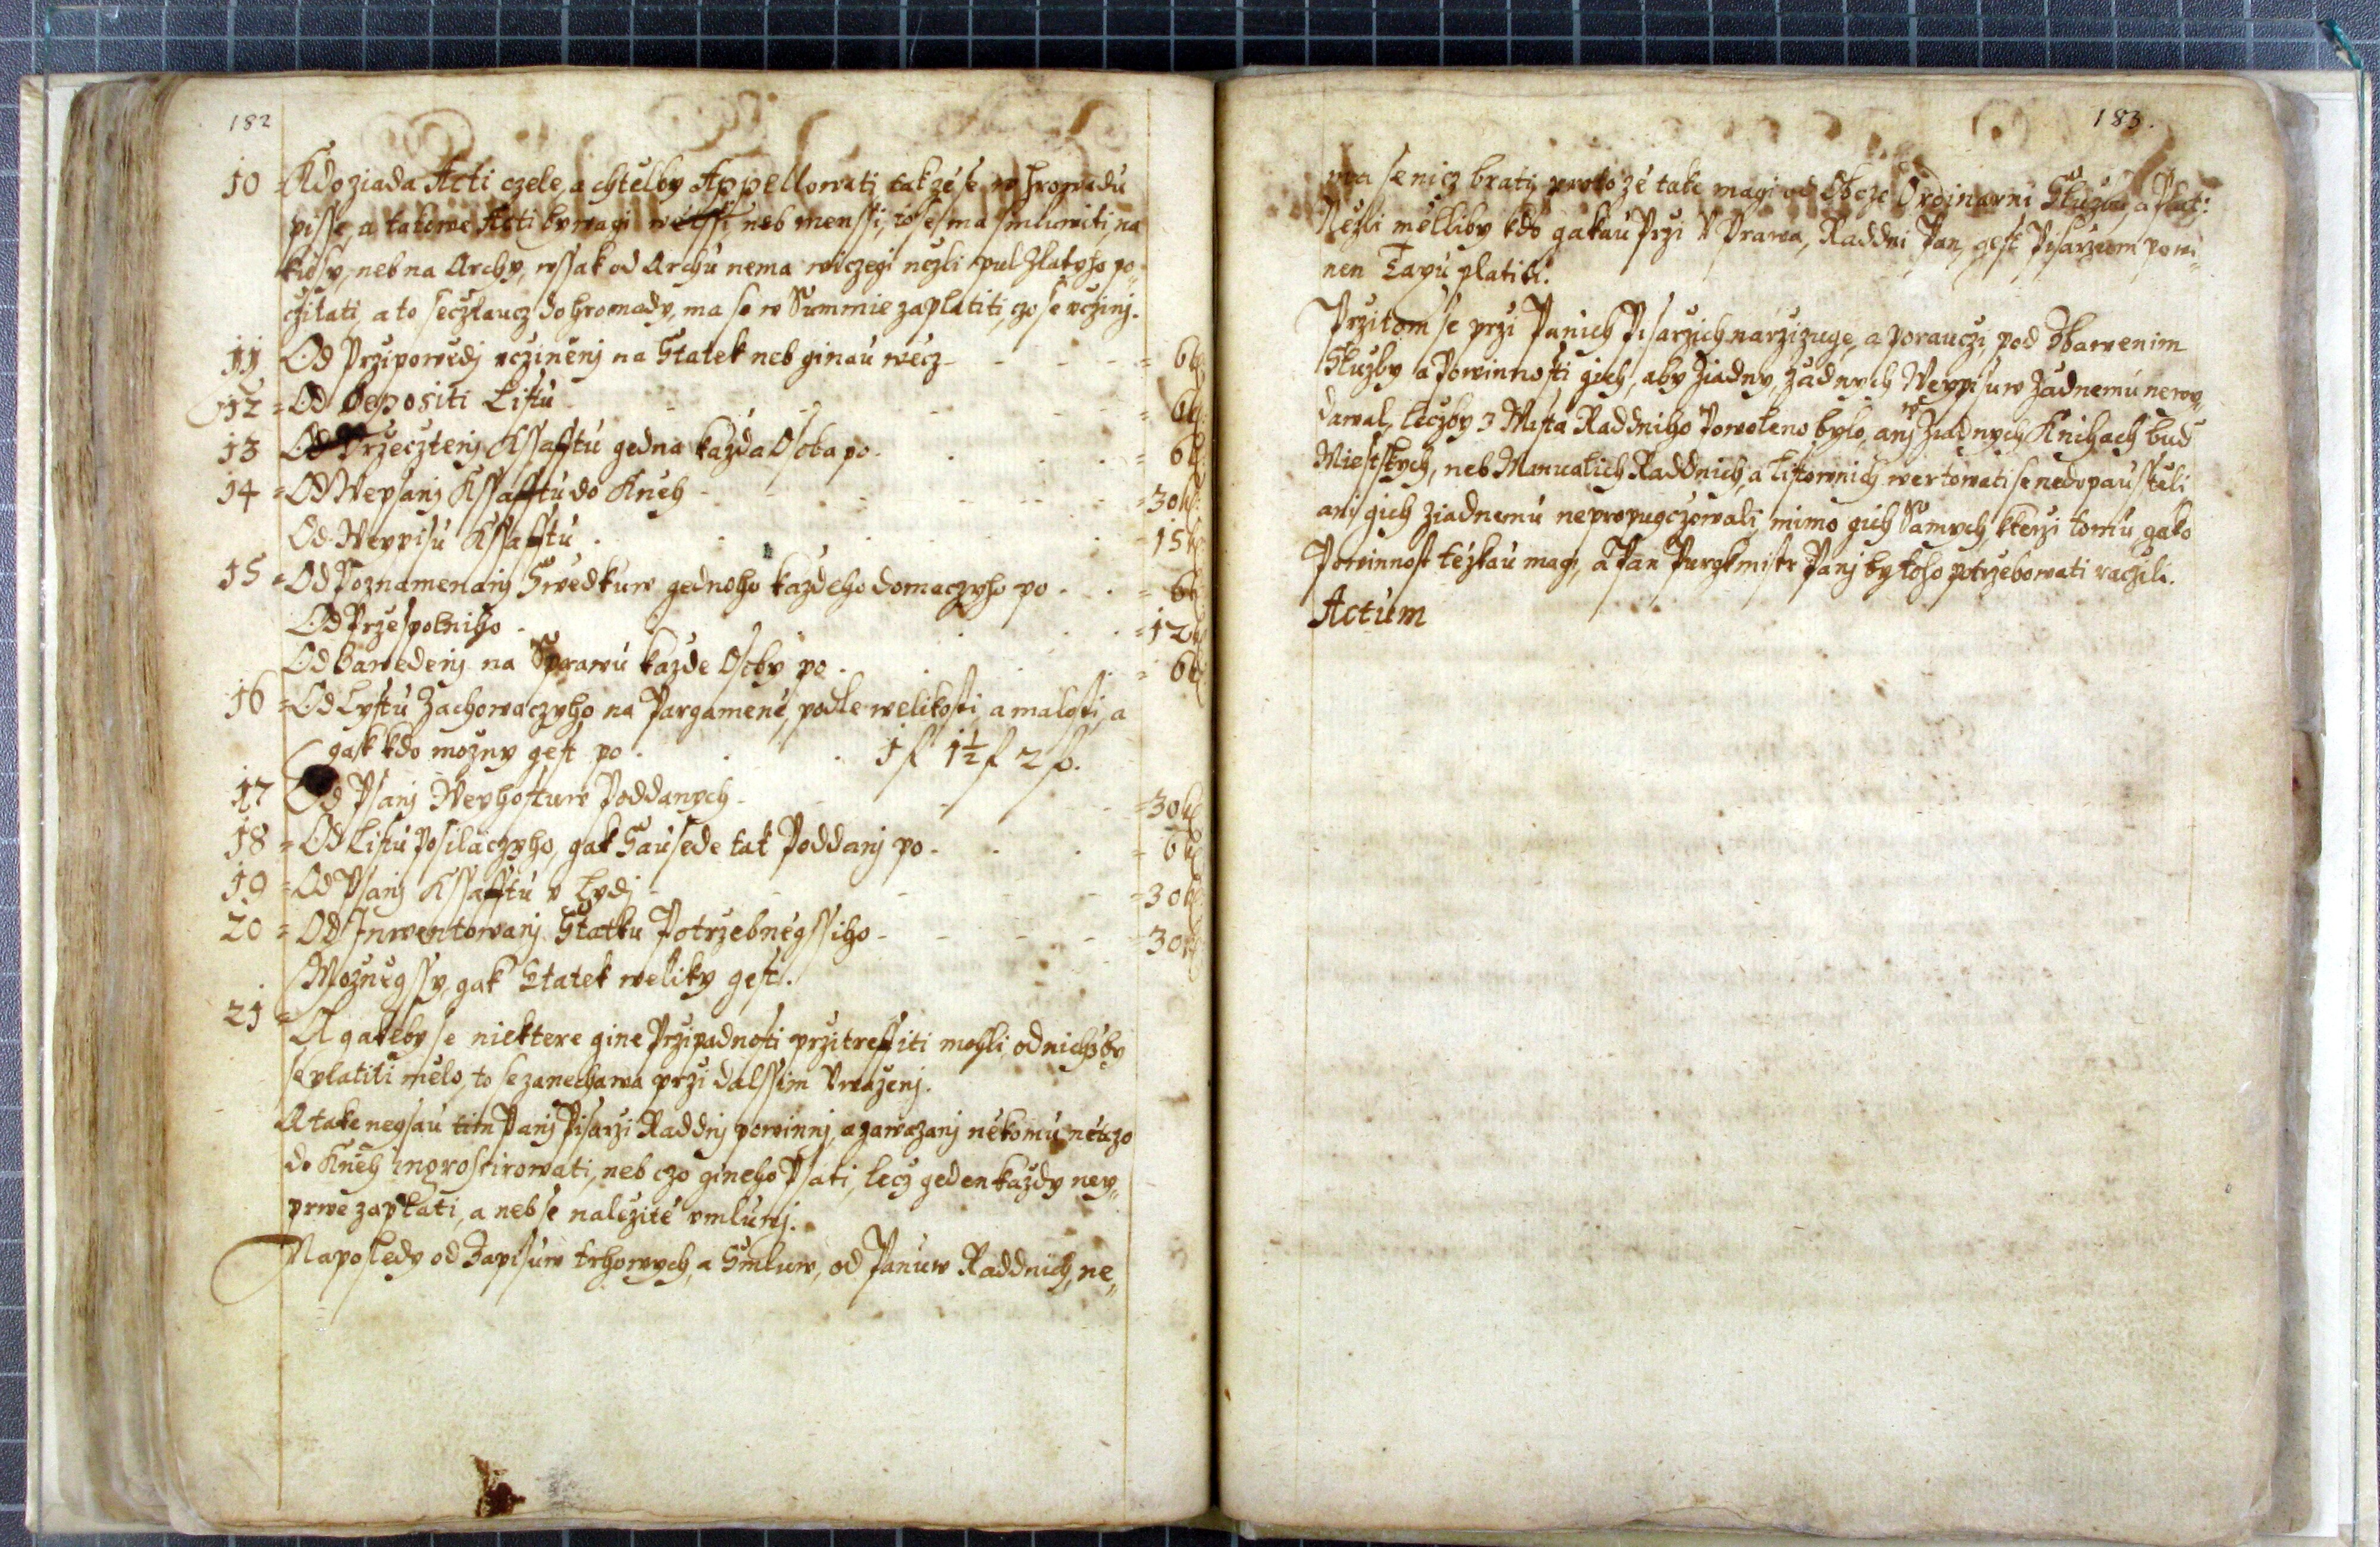 182
10 Kdo ziada Acti czele, a chtělby Appellowati, takže se w hromadu
pisse, a takowe Acti bywagi wětssi neb menssi, to se ma smluwiti, na
kusy, neb na Archy, wssak od Archu nema wiczegi nežli pul Zlatyho po-
czitati, a to secztaucz do hromady, ma se w Summie zaplatiti, czo se vczinj.
11 Od Przipowědj vcziněnj na Statek neb ginau wěcz - - - = 6 kr
12 = Od Depositi Listu - - - = 6 kr
13 Od Przecztenj Kssafftu gedna každa Osoba po . . . = 6 kr
14 = Od Wepsanj Kssafftu do Kněh - - - = 30 kr
Od Weypisu Kssafftu . . . 15 kr
15 = Od Poznamenanj Swědkuw gednoho každeho domaczyho po . . = 6 kr
Od Przespolniho . . . = 12 kr
Od Zawedenj na Sprawu každe Osoby po . . . = 6 kr
16 = Od Lystu Zachowaczyho na Pargameně, podle welikosti, a malosti, a
gak kdo možny gest po . . . 1 f 1½ f 2 f.
17 Od Psanj Weyhostuw Poddanych - - - = 30 kr
18 = Od Listu Posilaczyho, gak Sausede tak Poddanj po . . . = 6 kr
19 = Od Psanj Kssafftu v Lydj - - - = 30 kr
20 = Od Inwentowanj Statku Potrzebněgssiho - - - 30 kr
Možněgssy, gak Statek weliky gest.
21 =
A gakby se niektere gine Przipadnosti przitreffiti mohli, od nichžby
se platiti mělo, to se zanechawa przi dalssim Vwaženj.
A take negsau titn Panj Pisarzi Raddnj powinnj, a zawazanj někomu něczo
do Kněh ingrossirowati, neb czo gineho Psati, lecz geden každy ney„
prwe zaplati, a neb se naležitě vmluwj.
Naposledy od Zapisuw trhowych, a Smluw, od Panuw Raddnich, ne„
183.
ma se nicz brati, protože take magi od Obcze Ordinarni Službu, a Plat:
Nežli mělliby kdo gakau Przi V Prawa, Raddni Pan, gest Pisarzom powi„
nen Taxu platiti.
Przitom se przi Panich Pisarzich narzizuge, a porauczi, pod Zbawenim
Služby a Powinnosti gich, aby Ziadny, žadnych Weypisuw žadnemu newy„
dawal, leczby z Mista Raddniho Powoleno bylo, anj w Ziadnych Knihach bud
Miestskych, neb Manualich Raddnich, a Listownich wertowati se nedopausstěli
ani gich ziadnemu nepropugczowali, mimo gich Samych, kterzi tomu gako
Powinnost těžkau magi, a Pan Purgkmistr Panj by koho potrzebowati raczili.
Actum